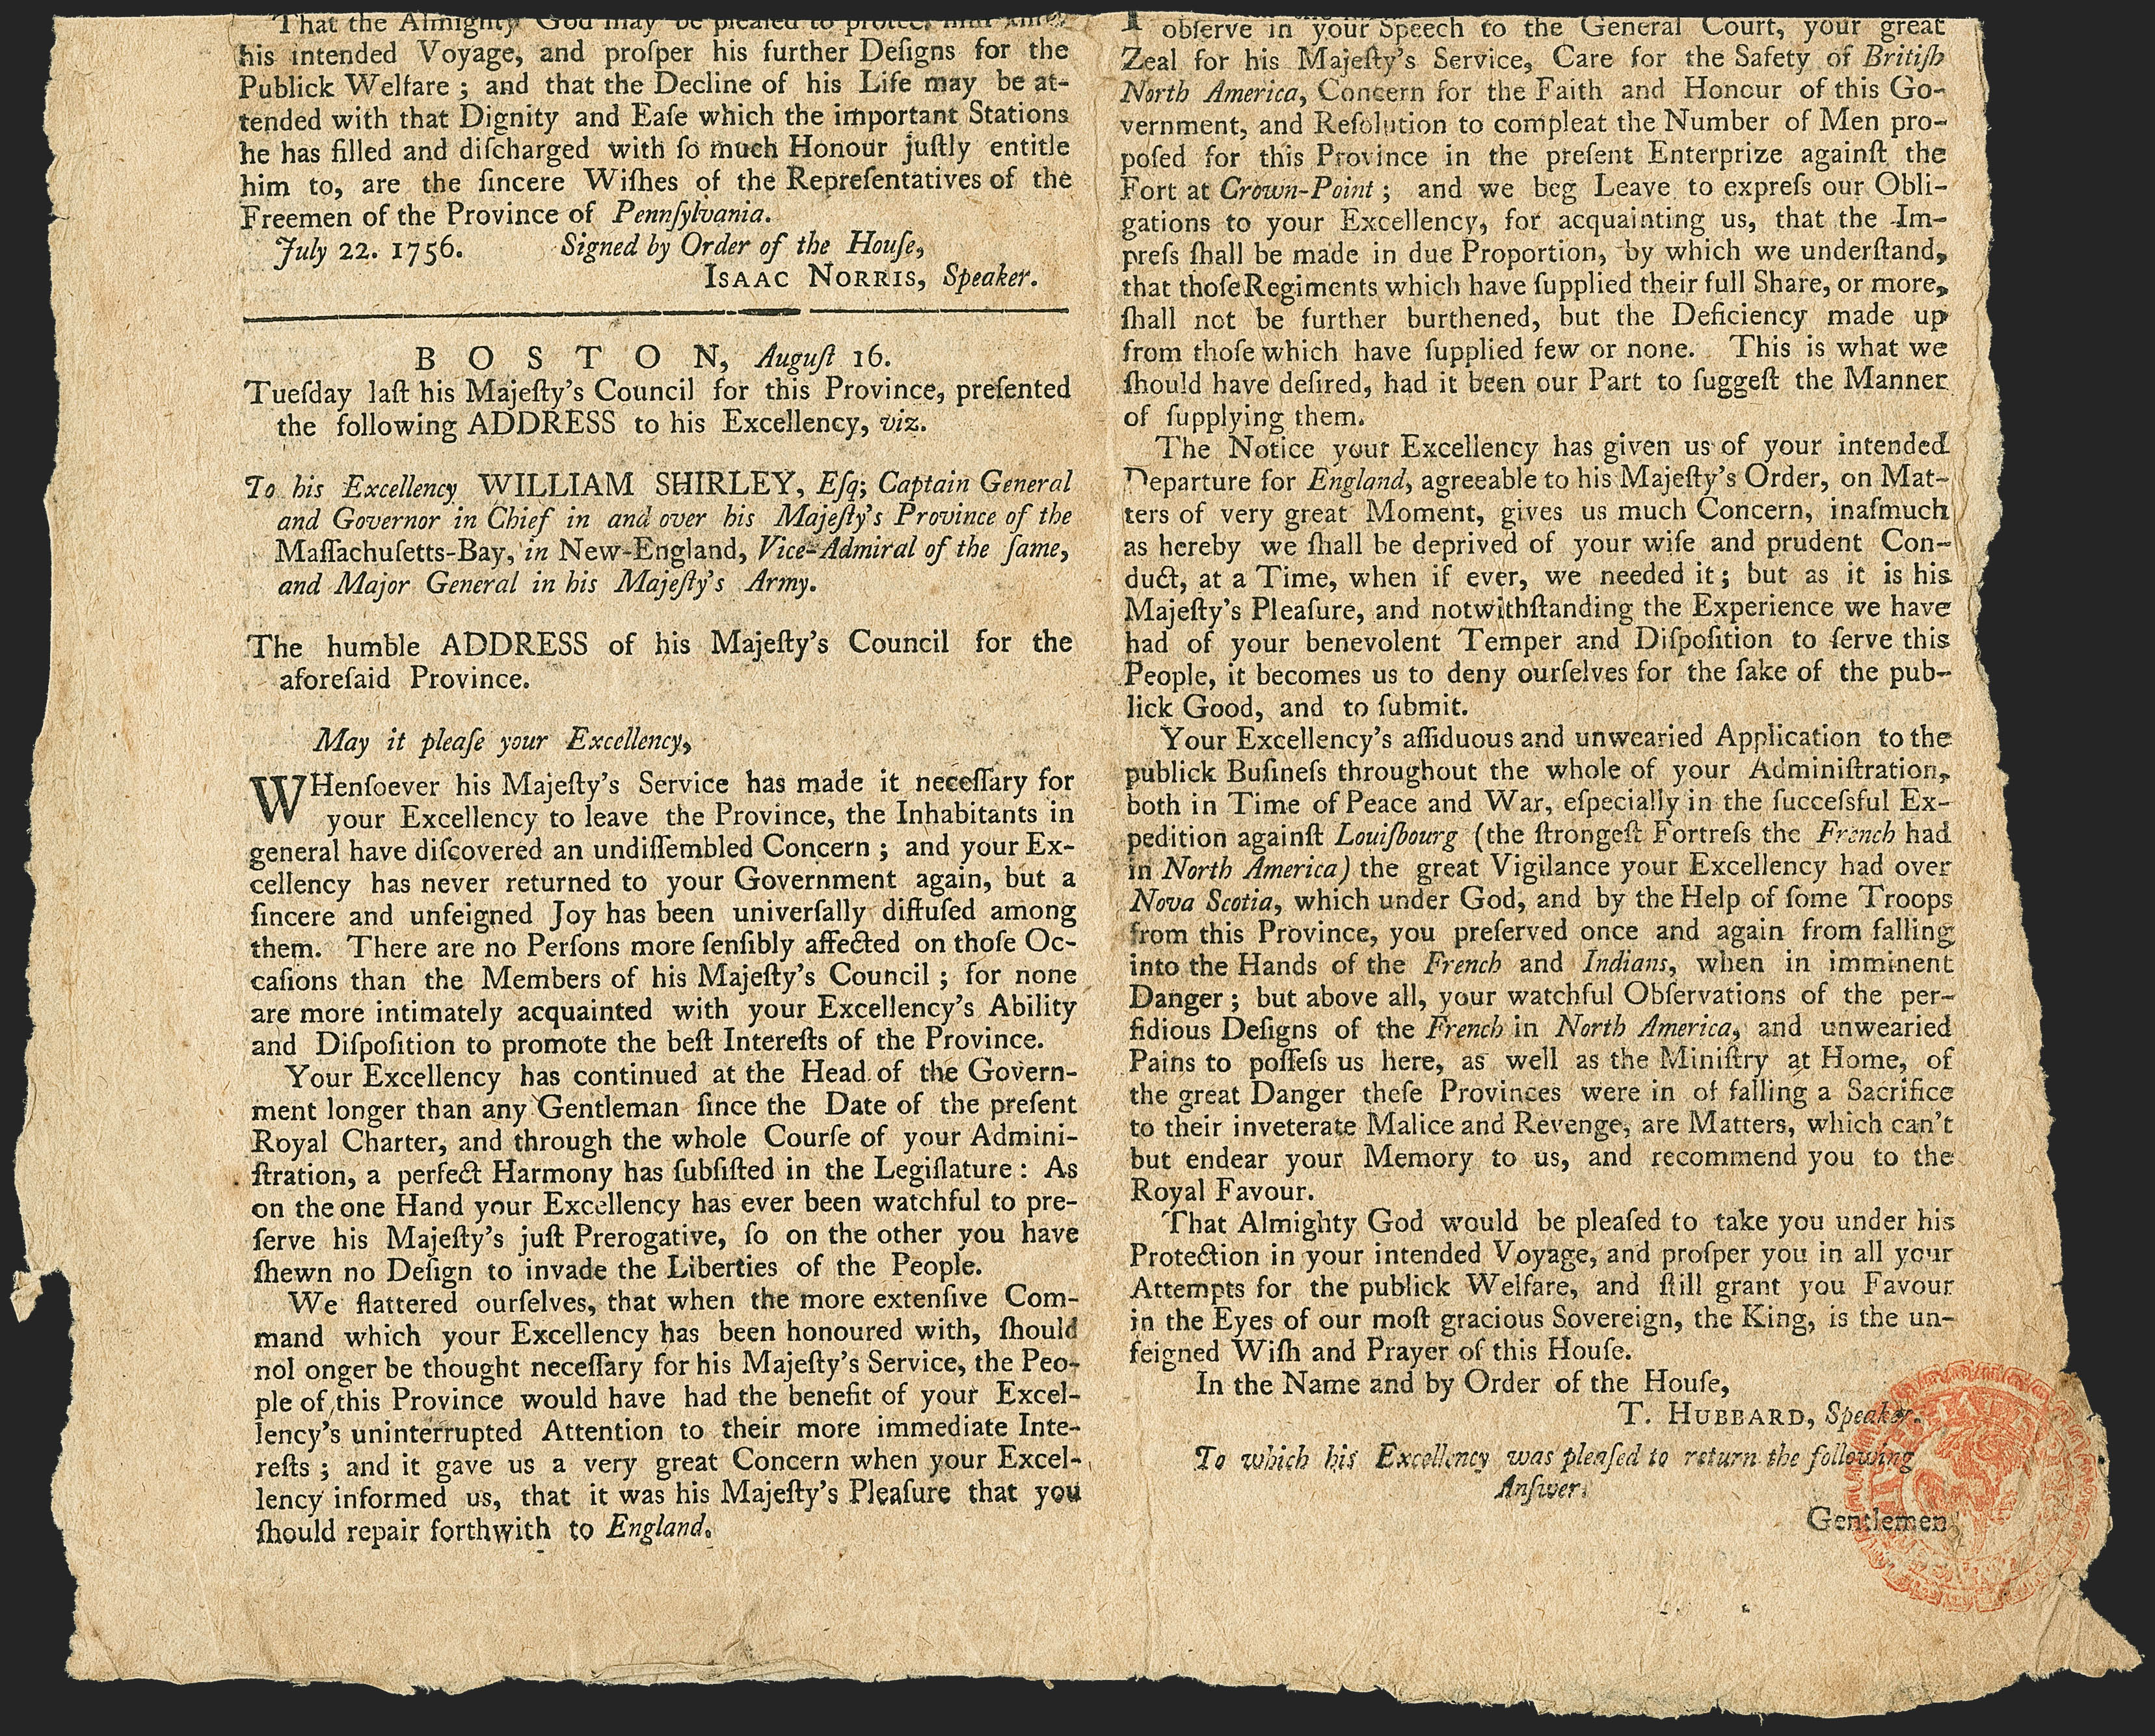 That the Almighty God may be pleaſed to protect him
his intended Voyage, and proſper his further Deſigns for the
Publick Welfare ; and that the Decline of his Life may be at-
tended with that Dignity and Eaſe which the important Stations
he has filled and diſcharged with ſo much Honour juſtly entitle
him to, are the ſincere Wiſhes of the Repreſentatives of the
Freemen of the Province of Pennſylvania.
July 22. 1756. Signed by Order of the Houſe,
ISAAC NORRIS, Speaker.
BOSTON, Auguſt 16.
Tueſday laſt his Majeſty's Council for this Province, preſented
the following ADDRESS to his Excellency, viz.
To his Excellency WILLIAM SHIRLEY, Eſq; Captain General
and Governor in Chief in and over his Majeſty's Province of the
Maſſachuſetts-Bay, in New-England, Vice-Admiral of the ſame,
and Major General in his Majeſty's Army.
The humble ADDRESS of his Majeſty's Council for the
aforeſaid Province.
May it pleaſe your Excellency,
WHenſoever his Majeſty's Service has made it neceſſary for
your Excellency to leave the Province, the Inhabitants in
general have diſcovered an undiſſembled Concern ; and your Ex-
cellency has never returned to your Government again, but a
ſincere and unfeigned Joy has been univerſally diffuſed among
them. There are no Perſons more ſenſibly affected on thoſe Oc-
caſions than the Members of his Majeſty's Council ; for none
are more intimately acquainted with your Excellency's Ability
and Diſpoſition to promote the beſt Intereſts of the Province.
Your Excellency has continued at the Head of the Govern-
ment longer than any Gentleman ſince the Date of the preſent
Royal Charter, and through the whole Courſe of your Admini-
ſtration, a perfect Harmony has ſubſiſted in the Legiſlature : As
on the one Hand your Excellency has ever been watchful to pre-
ſerve his Majeſty's juſt Prerogative, ſo on the other you have
ſhewn no Deſign to invade the Liberties of the People.
We flattered ourſelves, that when the more extenſive Com-
mand which your Excellency has been honoured with, ſhould
nol onger be thought neceſſary for his Majeſty's Service, the Peo-
ple of this Province would have had the benefit of your Excel-
lency's uninterrupted Attention to their more immediate Inte-
reſts ; and it gave us a very great Concern when your Excel-
lency informed us, that it was his Majeſty's Pleaſure that you
ſhould repair forthwith to England.
I obſerve in your Speech to the General Court, your great
Zeal for his Majeſty's Service, Care for the Safety of Britiſh
North America, Concern for the Faith and Honour of this Go-
vernment, and Reſolution to compleat the Number of Men pro-
poſed for this Province in the preſent Enterprize againſt the
Fort at Crown-Point ; and we beg Leave to expreſs our Obli-
gations to your Excellency, for acquainting us, that the Im-
preſs ſhall be made in due Proportion, by which we underſtand,
that thoſe Regiments which have ſupplied their full Share, or more,
ſhall not be further burthened, but the Deficiency made up
from thoſe which have ſupplied few or none. This is what we
ſhould have deſired, had it been our Part to ſuggeſt the Manner
of ſupplying them.
The Notice your Excellency has given us of your intended
Departure for England, agreeable to his Majeſty's Order, on Mat-
ters of very great Moment, gives us much Concern, inaſmuch
as hereby we ſhall be deprived of your wiſe and prudent Con-
duct, at a Time, when if ever, we needed it ; but as it is his
Majeſty's Pleaſure, and notwithſtanding the Experience we have
had of your benevolent Temper and Diſpoſition to ſerve this
People, it becomes us to deny ourſelves for the ſake of the pub-
lick Good, and to ſubmit.
Your Excellency's aſſiduous and unwearied Application to the
publick Buſineſs throughout the whole of your Adminiſtration,
both in Time of Peace and War, eſpecially in the ſucceſsful Ex-
pedition againſt Louiſbourg (the ſtrongeſt Fortreſs the French had
in North America) the great Vigilance your Excellency had over
Nova Scotia, which under God, and by the Help of ſome Troops
from this Province, you preſerved once and again from falling
into the Hands of the French and Indians, when in imminent
Danger ; but above all, your watchful Obſervations of the per-
fidious Deſigns of the French in North America, and unwearied
Pains to poſſeſs us here, as well as the Miniſtry at Home, of
the great Danger theſe Provinces were in of falling a Sacrifice
to their inveterate Malice and Revenge, are Matters, which can't
but endear your Memory to us, and recommend you to the
Royal Favour.
That Almighty God would be pleaſed to take you under his
Protection in your intended Voyage, and proſper you in all your
Attempts for the publick Welfare, and ſtill grant you Favour
in the Eyes of our moſt gracious Sovereign, the King, is the un-
feigned Wiſh and Prayer of this Houſe.
In the Name and by Order of the Houſe,
T. HUBBARD, Speaker.
To which his Excellency was pleaſed to return the following
Anſwer.
Gentlemen